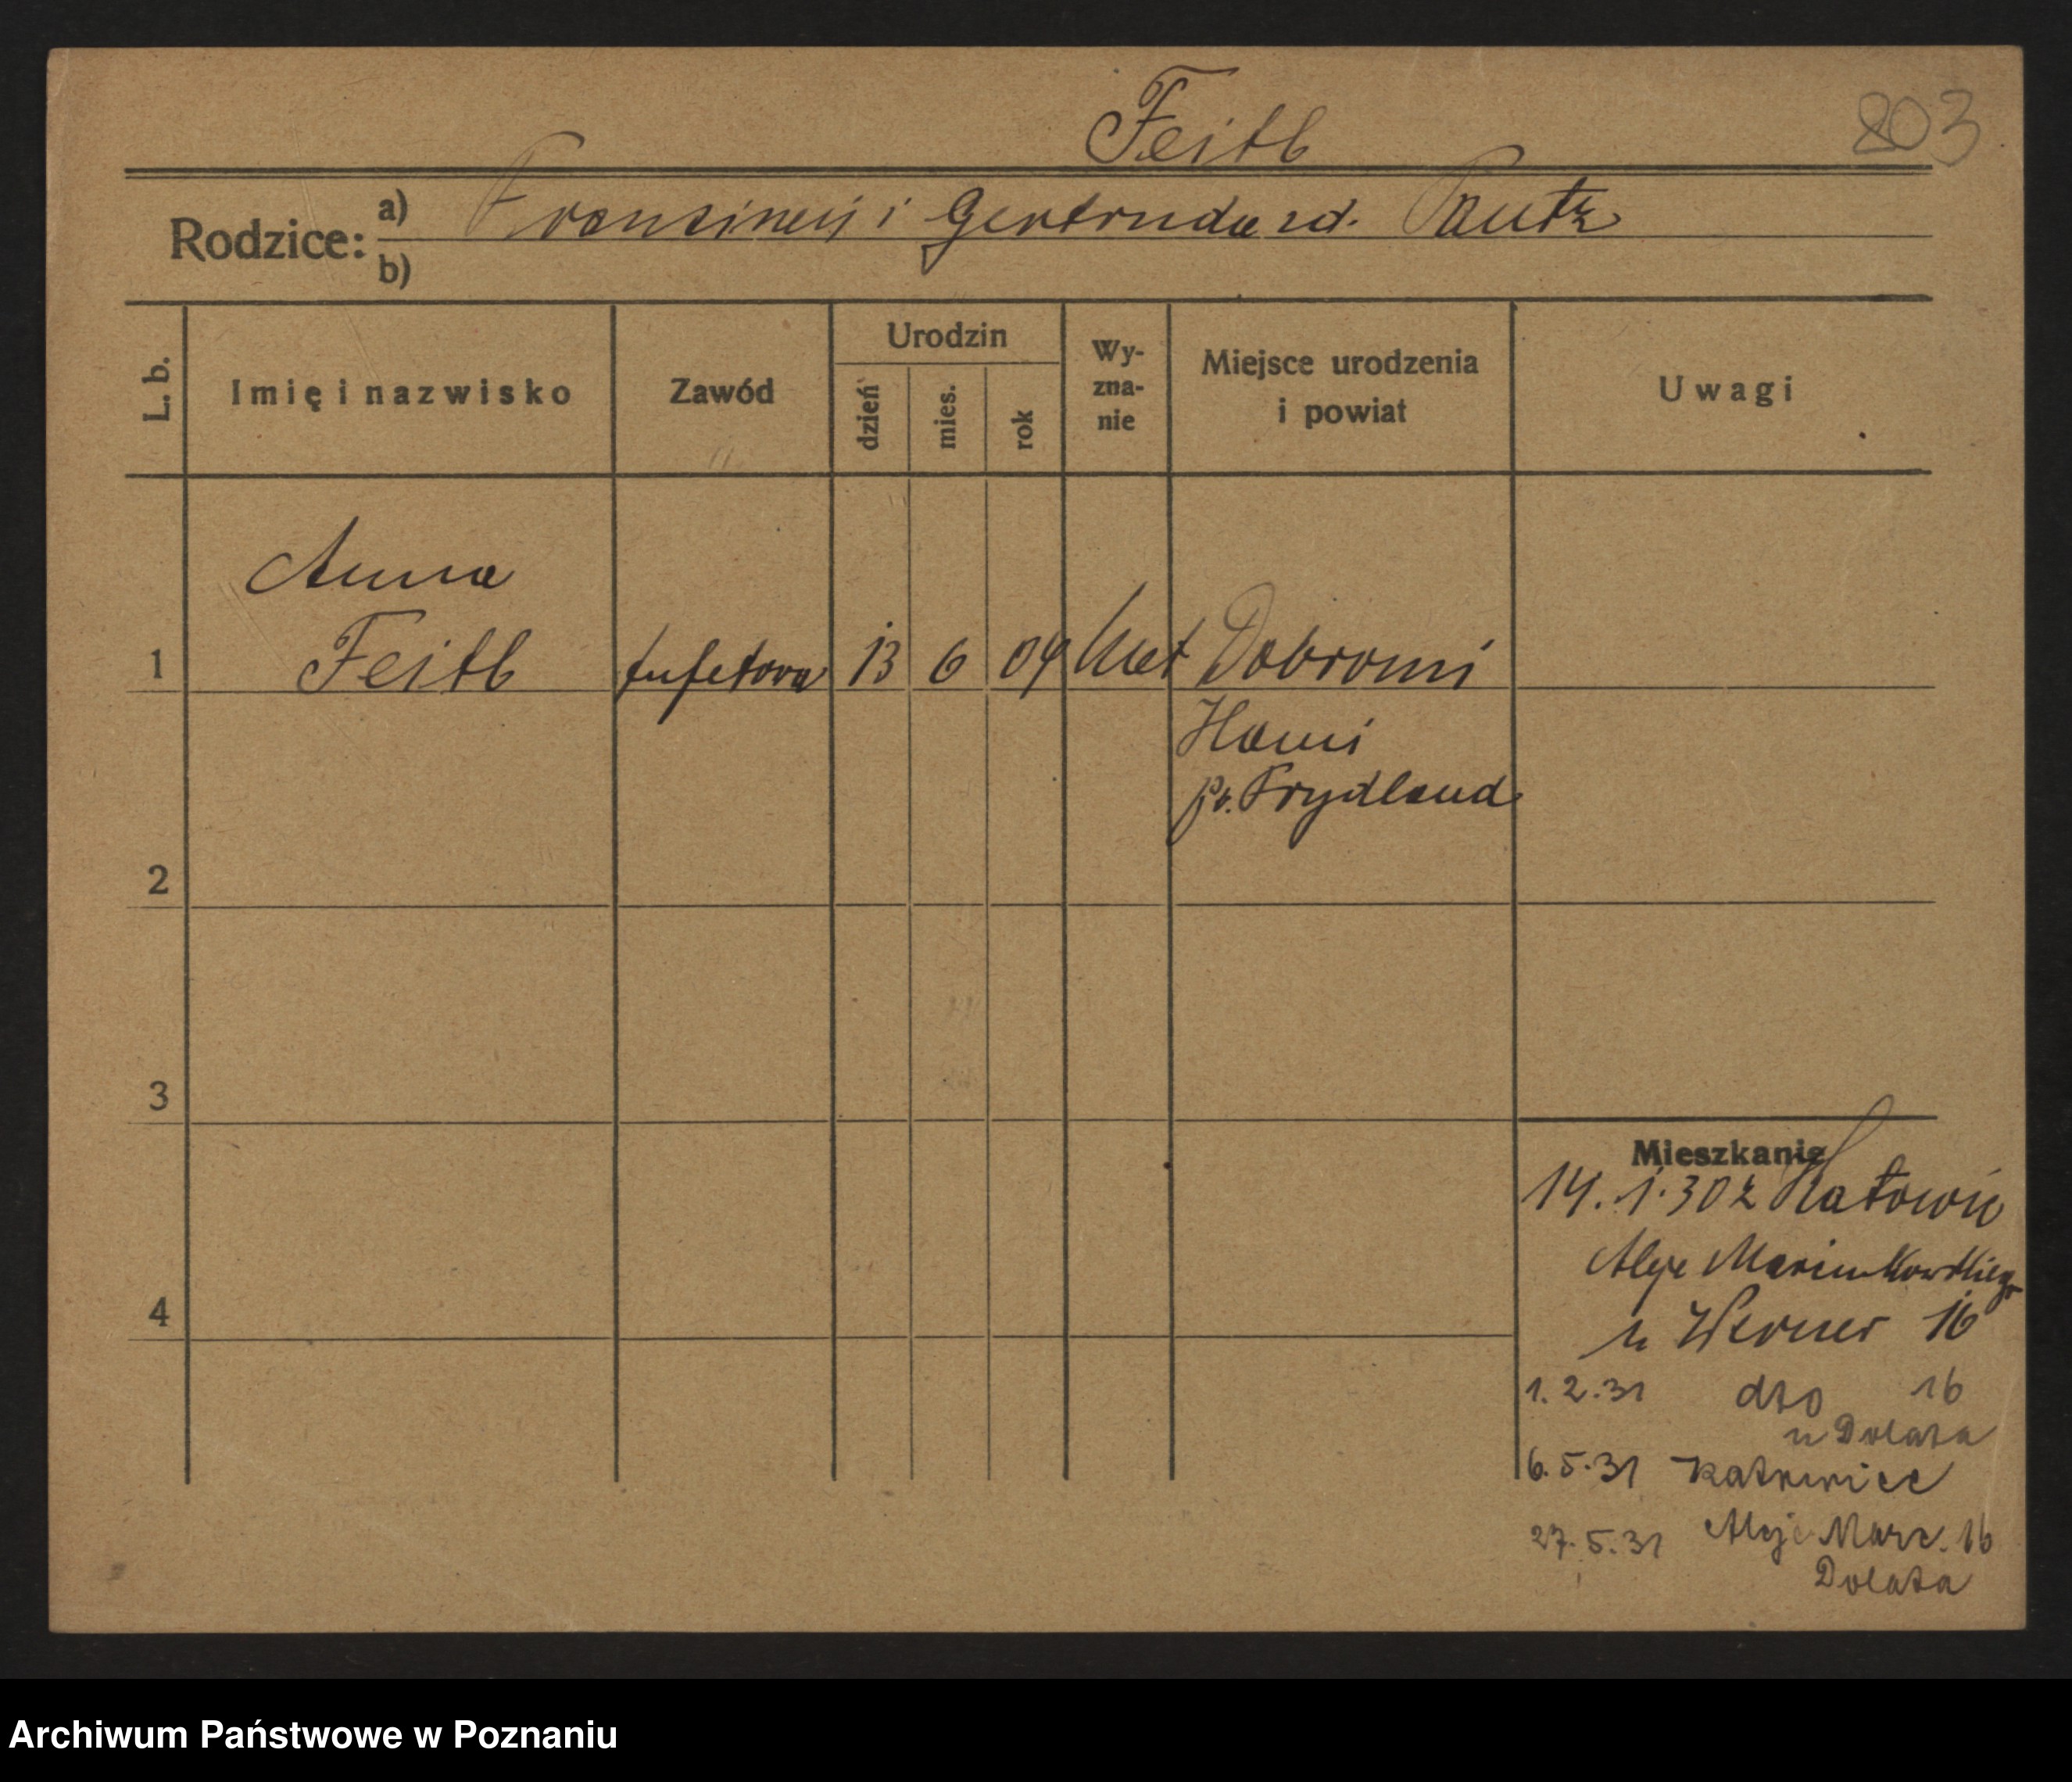 Feitl
803
Rodzice:
a) Franciszek i Gertruda zd. Pautz
b)
L. b.
Imię i nazwisko
Zawód
Urodzin
dzień
mies.
rok
Wy-
zna-
nie
Miejsce urodzenia
i powiat
Uwagi
Anna
1 Feitl bufetowa 13 6 04 kat Dobromi
Hami
p. Frydland
2
3
4
Mieszkanie
14. 1. 30 z Katowic
Aleje Marcinkowskiego
u Werner 16
1. 2. 31 dto 16
u Dolata
6. 5. 31 Katowice
27. 5. 31 Aleje Marc. 16
Dolata
Archiwum Państwowe w Poznaniu